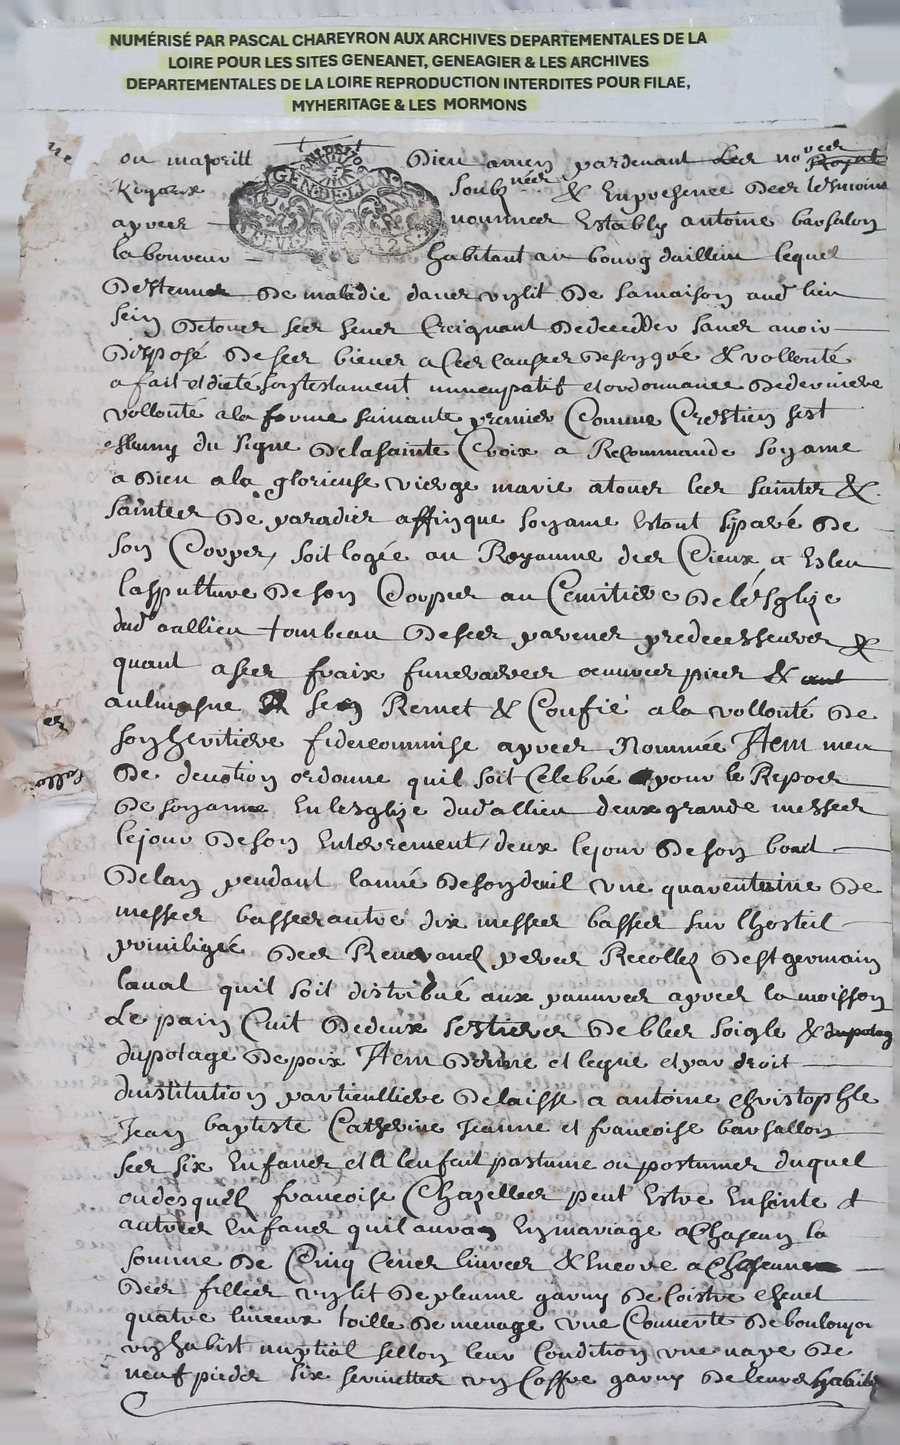 NUMÉRISÉ PAR PASCAL CHAREYRON AUX ARCHIVES DEPARTEMENTALES DE LA
LOIRE POUR LES SITES GENEANET, GENEAGIER & LES ARCHIVES
DEPARTEMENTALES DE LA LOIRE REPRODUCTION INTERDITES POUR FILAE,
MYHERITAGE & LES MORMONS
Dieu amen pardevant les no
Royaux soubz & En presence des tesmoins
apres nommes Estably antoine barsalon
laboureur habitant au bourg daillieu lequel
Destenu de maladie dans un lit de sa maison aud lieu
sein de tous ses sens Craignant de decedder sans avoir
disposé de ses biens a ces causes de son gré & vollonté
a fait et dicté son testament nuncupatif et ordonnance de derniere
vollonté a la forme suivante premier Comme Crestien sest
du signe de la sainte Croix a Recommandé son ame
a Dieu a la glorieuse vierge marie a tous les saintz &
saintes de paradis affin que son ame Estant separé de
son Corps, soit logée au Royaume des Cieux, a Esleu
la spulture de son Corps au Cemitiere de lésglize
dud aallieu tombeau de ses parens predecesseurs &
quant a ses fraix funeraires oeuvres pies &
aulmosne sen Remet & Confie a la vollonté de
son heritiere fideicommise apres Nommée Item meu
de devotion ordonne quil soit Celebré pour le Repos
de son ame En lesglize dud allieu deux grande messes
le jour de son Enterrement, deux le jour de son bout
de lan pendant lanné de son deuil une quarentaine de
messes basses autre dix messes basses sur lhostel
priviligée des Reverand peres Recollez de st germain
laval quil soit distribué aux pauvres apres la moisson
Le pain Cuit de deux sestiers de bles soigle &
du potage de poix Item donne et legue et par droit
dinstitution particulliere delaisse a antoine christophle
Jean baptiste Catherine Jeanne et francoise barsallon
ses six Enfans et a lenfant postume ou postumes duquel
ou desquelz francoise Chazelles peut Estre Enseinte &
autres Enfans quil aura En mariage a Chascun la
somme de Cinq Cens livres & Encore a Chascune
des filles un lit de plume garny de Coistre chevet
quatre linceux toille de menage une Couverte de boulonjon
un habist nuptial sellon leur Condition une nape de
neuf pieds six serviettes un Coffre garny de leurs habits